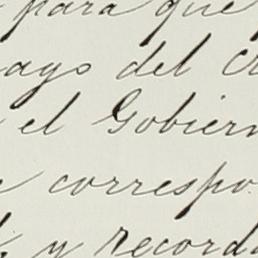 para que
ago del C
el Gobiern
correspo
y record